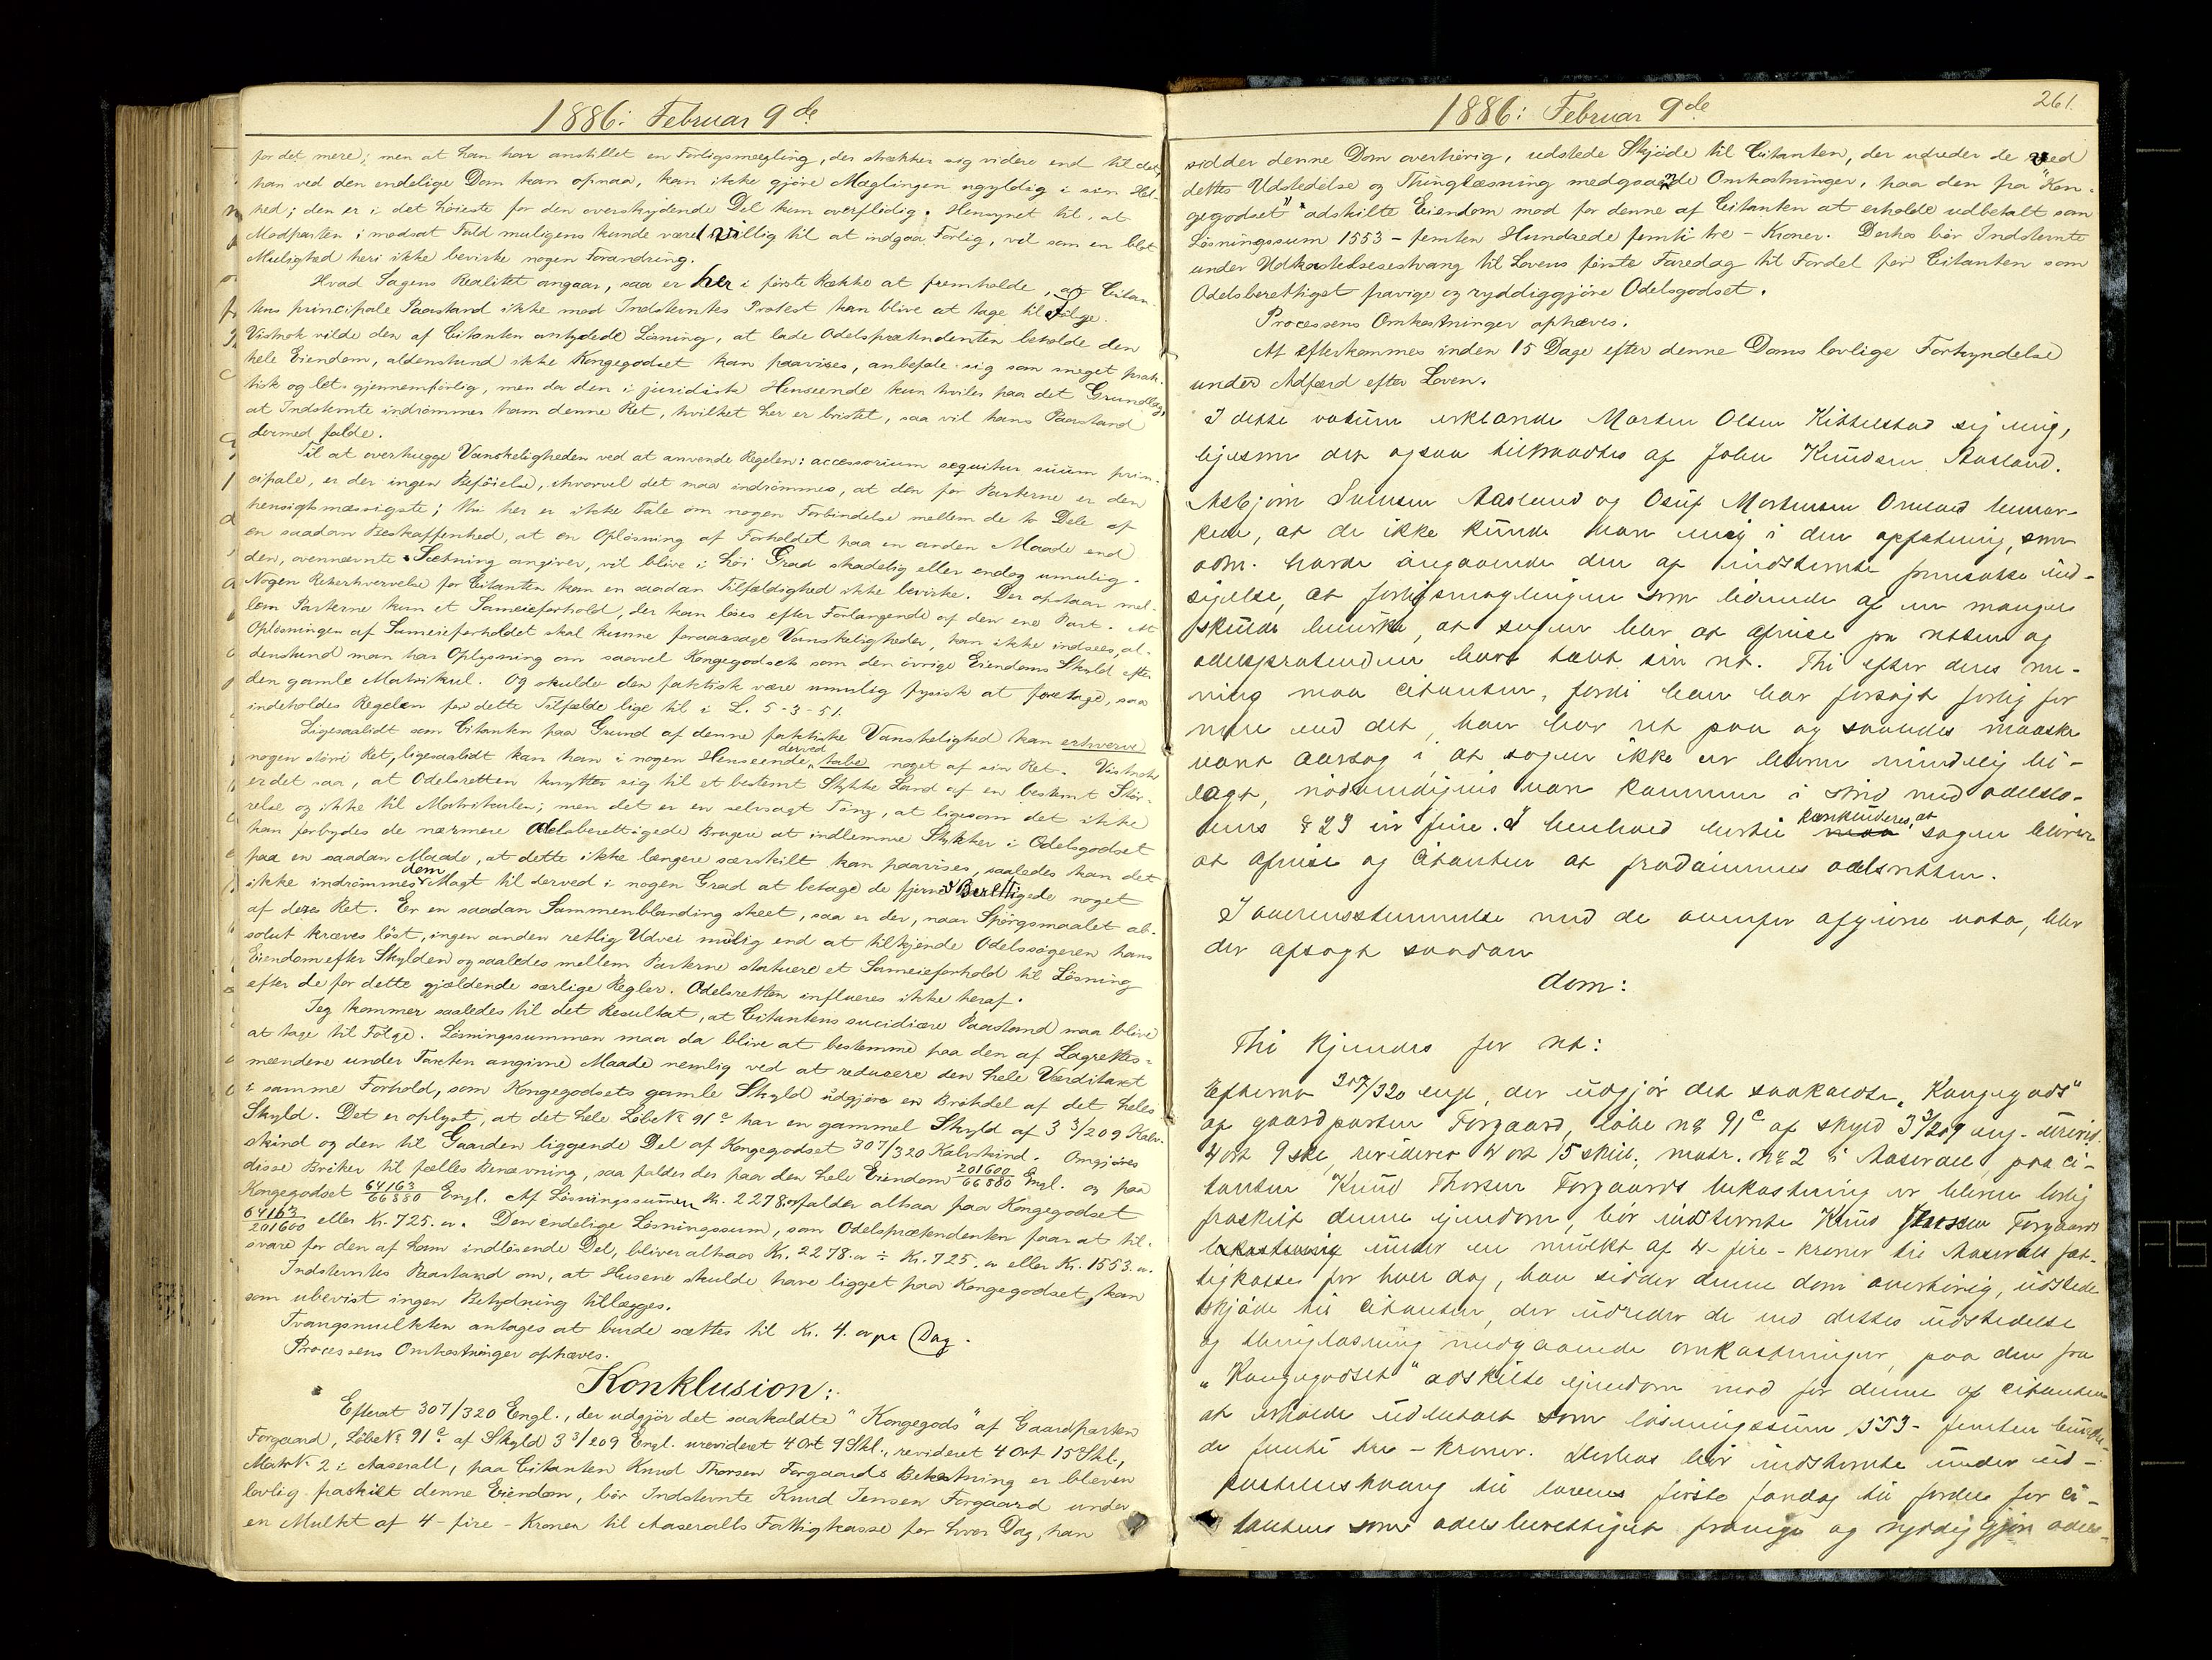 1886: Februar 9de
for det mere; men at han har anstillet en Forligsmægling, der strækker sig videre end til det,
han ved den endelige Dom kan opnaa, kan ikke gjöre Mæglingen ugyldig i sin Hel-
hed; den er i det höieste for den overskydende Del kun overflödig. Hensynet til, at
Modparten i modsat Fald muligens kunde været villig til at indgaa Forlig, vil som en blot
Mulighed heri ikke bevirke nogen Forandring.
Hvad Sagens Realitet angaar, saa er her i förste Række at fremholde, at Citan-
tens principale Paastand ikke mod Indstevntes Protest kan blive at tage til Fölge.
Vistnok vilde den af Citanten antydede Lösning, at lade Odelsprætendenten beholde den
hele Eiendom, aldenstund ikke Kongegodset kan paavises, anbefale sig som meget prak-
tisk og let gjennemförlig, men da den i juridisk Henseende kun hviler paa det Grundlag,
at Indstevnte indrömmer ham denne Ret, hvilket her er bristet, saa vil hans Paastand
dermed falde.
Til at overhugge Vanskeligheden ved at anvende Regelen: accessorium sequitur suum prin-
cipale, er der ingen Beföielse, ihvorvel det maa indrömmes, at den for Parterne er den
hensigtsmæssigste; thi her er ikke Tale om nogen Forbindelse mellem de to Dele af
en saadan Beskaffenhed, at en Oplösning af Forholdet paa en anden Maade end
den, ovennævnte Sætning angiver, vil blive i höi Grad skadelig eller endog umulig.
Nogen Retserhvervelse for Citanten kan en saadan Tilfældighed ikke bevirke. Der opstaar mel-
lem Parterne kun et Sameieforhold, der kan löses efter Forlangende af den ene Part. At
Oplösningen af Sameieforholdet skal kunne foraarsage Vanskeligheder, kan ikke indsees, al-
denstund man har Oplysning om saavel Kongegodsets som den övrige Eiendoms Skyld efter
den gamle Matrikul. Og skulde den faktisk være umulig fysisk at foretage, saa
indeholdes Regelen for dette Tilfælde lige til i L. 5-3-51.
Ligesaalidt som Citanten paa Grund af denne faktiske Vanskelighed kan erhverve
nogen större Ret, ligesaalidt kan han i nogen Henseende derved tabe noget af sin Ret. Vistnok
er det saa, at Odelsretten knytter sig til et bestemt Stykke Land af en bestemt Stör-
relse og ikke til Matrikulen; men det er en selvsagt Ting, at ligesom det ikke
kan forbydes de nærmere Odelsberettigede Brugere at indlemme Stykker i Odelsgodset
paa en saadan Maade, at dette ikke længere særskilt kan paavises, saaledes kan det
ikke indrömmes dem Magt til derved i nogen Grad at betage de fjernere Berettigede noget
af deres Ret. Er en saadan Sammenblanding skeet, saa er der, naar Spörgsmaalet ab-
solut kræves löst, ingen anden retlig Udvei mulig end at tilkjende Odelssögeren hans
Eiendom efter Skylden og saaledes mellem Parterne statuere et Sameieforhold til Lösning
efter de for dette gjældende særlige Regler. Odelsretten influeres ikke heraf.
Jeg kommer saaledes til det Resultat, at Citantens sucidiære Paastand maa blive
at tage til Fölge. Lösningssummen maa da blive at bestemme paa den af Lagrettes-
mændene under Taxten angivne Maade nemlig ved at reducere den hele Værditaxt
i samme Forhold, som Kongegodsets gamle Skyld udgjöre en Brökdel af det heles
Skyld. Det er oplyst, at det hele Löbe No 91c har en gammel Skyld af 3 3/209 Kalv-
skind og den til Gaarden liggende Del af Kongegodset 307/320 Kalvskind. Omgjöres
disse Bröker til fælles Benævning, saa faldes des paa den hele Eiendom 201600/66880 Engl. og paa
Kongegodset 64163/66880 Engl. Af Lösningssummen Kr. 2278. falder altsaa paa Kongegodset
64163/201600 eller Kr. 725. Den endelige Lösningssum, som Odelsprætendenten faar at til-
svare for den af ham indlösende Del, bliver altsaa Kr. 2278. ÷ Kr. 725. eller Kr. 1553.
Indstevntes Paastand om, at Husene skulde have ligget paa Kongegodset, kan
som ubevist ingen Betydning tillægges.
Tvangsmulkten antages at burde sættes til Kr. 4. pr Dag.
Processens Omkostninger ophæves.
Konklusion:
Efterat 307/320 Engl., der udgjör det saakaldte "Kongegods" af Gaardparten
Forgaard, Löbe No 91c af Skyld 3 3/209 Engl. urevideret 4 Ort 9 Skl., revideret 4 Ort 15 Skl.,
Matr No 2 i Aaserall, paa Citanten Knud Thorsen Forgaards Bekostning er bleven
lovlig fraskilt denne Eiendom, bör Indstevnte Knud Jensen Forgaard under
en Mulkt af 4 - fire - Kroner til Aaseralls Fattigkasse for hver Dag, han
1886: Februar 9de
261.
sidder denne Dom overhörig, udstede Skjöde til Citanten, der udreder de ved
dettes Udstedelse og Thinglæsning medgaaende Omkostninger, paa den fra "Kon-
gegodset" adskilte Eiendom mod for denne af Citanten at erholde udbetalt som
Lösningssum 1553 - femten Hundrede femti tre - Kroner. Derhos bör Indstevnte
under Udkastelsestvang til Lovens förste Faredag til Fordel for Citanten som
Odelsberettiget fravige og ryddiggjöre Odelsgodset.
Processens Omkostninger ophæves.
At efterkommes inden 15 Dage efter denne Doms lovlige Forkyndelse
under Adfærd efter Loven.
I dette votum erklærede Morten Olsen Kittelstad sig enig,
ligesom det ogsaa tiltraadtes af John Knudsen Aasland.
Asbjörn Aasland og Osuf Mortensen bemær-
kede, at de ikke kunde være enig i den opfatning, som
adm. havde angaaende den af indstevnte fremsatte ind-
sigelse, at forligsmæglingen som lidende af en mangel
skulde bevirke, at sagen blev at afvise fra retten og
odelsprætendenten have tabt sin ret. Thi efter deres me-
ning maa citanten, fordi han har forsögt forlig for
mere end det, han har ret paa og saaledes maaske
være aarsag i, at sagen ikke er bleven mindelig bi-
lagt, nödvendigvis være kommen i strid med odelslo-
vens § 29 in fine. I henhold hertil kunde sagen bliver
at afvise og citanten at fradömmes odelsretten.
I overensstemmelse med de ovenfor afgivne vota, blev
der afsagt saadan
dom:
Thi kjendes for ret:
Efterat 307/320 engl, der udgjör det saakaldte "Kongegods"
af gaardparten Forgaard, löbe no 91c af skyld 3 3/209 eng. urevid.
4 ort 9 skl, revideret 4 ort 15 skill., matr. no 2 i Aaserall, paa ci-
tanten Knud Thorsen Forgaards bekostning er bleven lovlig
fraskilt denne ejendom, bör indstevnte Knud Jenssen Forgaard
under en mulkt af 4 - fire - kroner til Aaseralls fat-
tigkasse for hver dag, han sidder denne dom overhörig, udstede
skjöde til citanten, der udreder de ved dettes udstedelse
og thinglæsning medgaaende omkostninger, paa den fra
"Kongegodset" adskilte ejendom mod for denne af citanten
at erholde udbetalt som lösningssum 1553 - femten hundre-
de femti tre - kroner. Derhos bör indstevnte under ud-
kastelsestvang til lovens förste faredag til fordel for ci-
tanten som odelsberettiget fravige og ryddiggjöre odels-